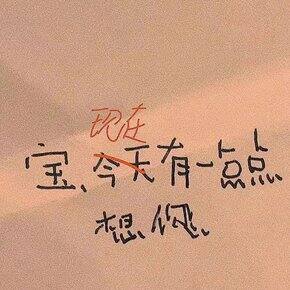 现在
宝、今天有一点点
想你